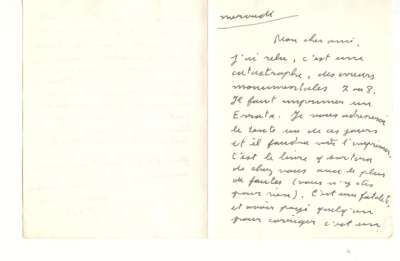 mercredi
Mon cher ami,
j'ai relu, c'est une
catastrophe, des erreurs
monumentales 7 ou 8.
Il faut imprimer un
Errata. Je vous adresserai
le texte un de ces jours
et il faudra vite l'imprimer,
C'est le livre q sortira
de chez vous avec le plus
de fautes (vous n'y êtes
pour rien). C'est une fatalité,
et avoir payé quelqu'un
pour corriger c'est une